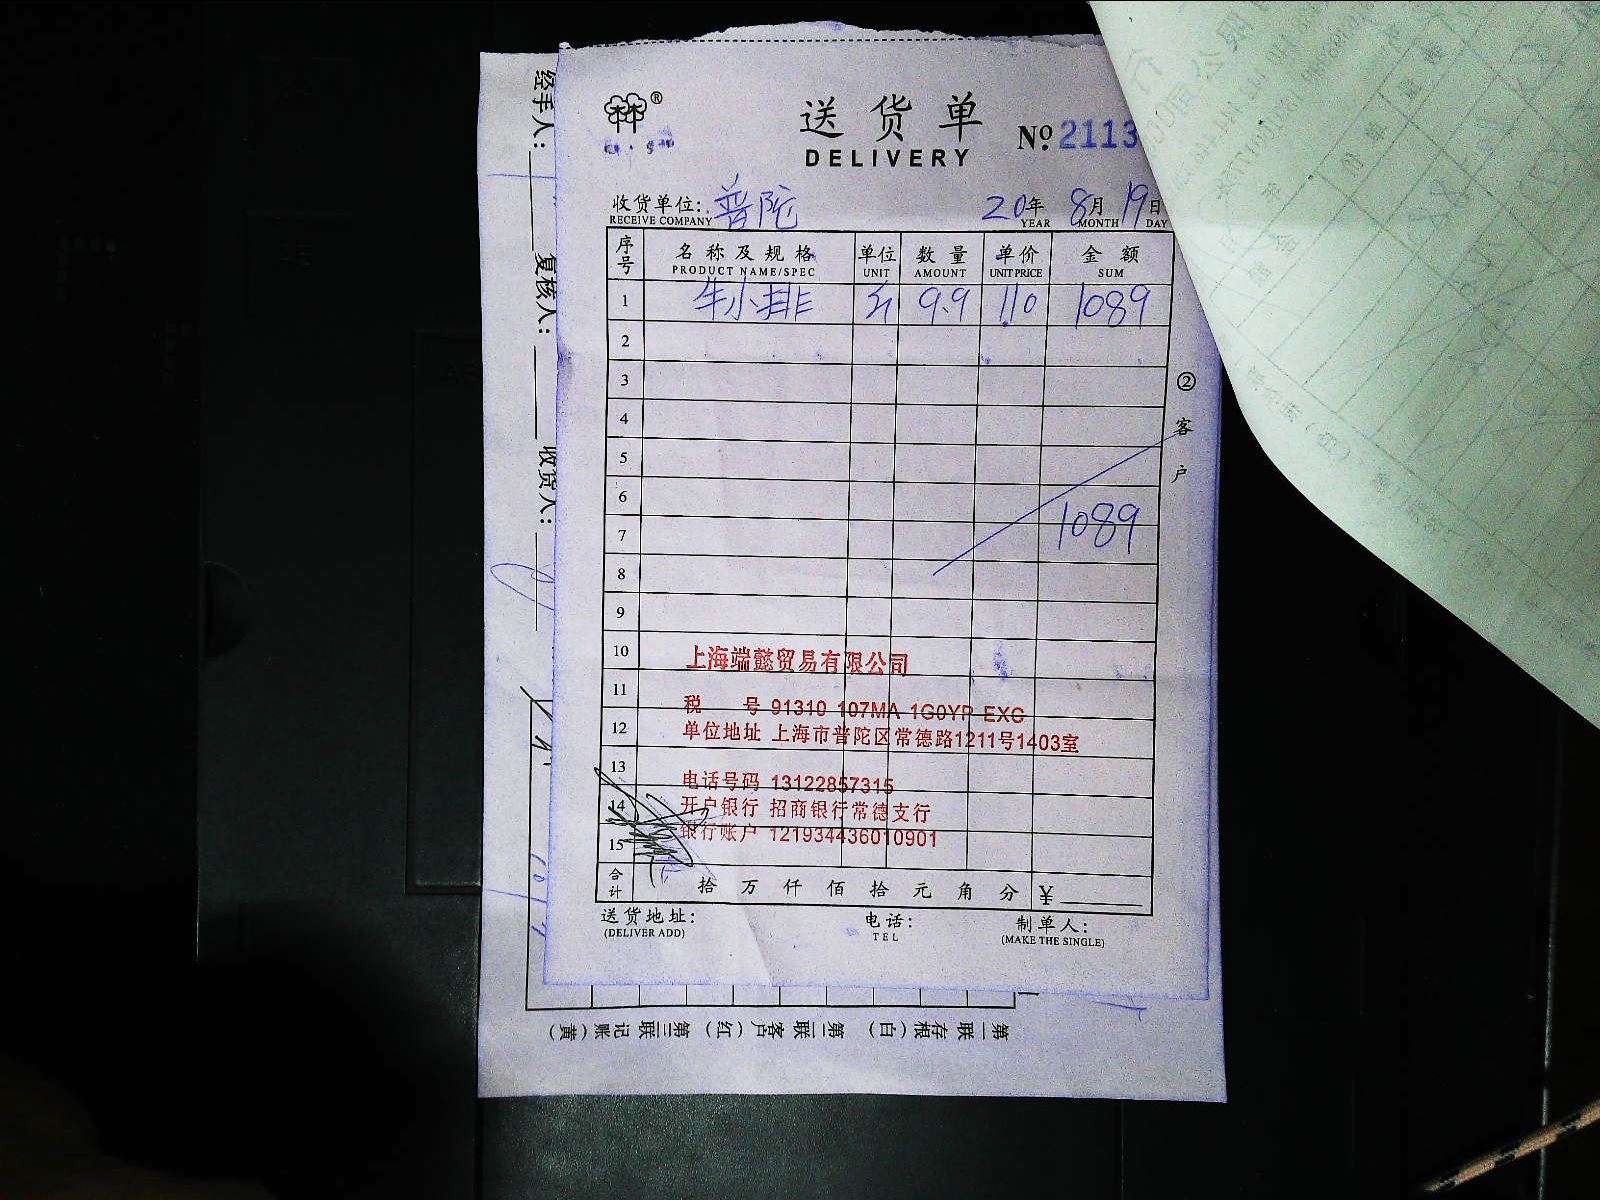 送货单
DELIVERY
№ 2113
收货单位: 普陀 20年 8月 19日
RECEIVE COMPANY YEAR MONTH DAY
序号 名称及规格 单位 数量 单价 金额
PRODUCT NAME/SPEC UNIT AMOUNT UNIT PRICE SUM
1 牛小排 9.9 110 1089
2
3
4
5
6
7 1089
8
9
10
11
12
13
14
15
② 客户
上海端懿贸易有限公司
税 号 91310 107MA 1G0YP EXC
单位地址 上海市普陀区常德路1211号1403室
电话号码 13122857315
开户银行 招商银行常德支行
银行账户 121934436010901
合计 拾 万 仟 佰 拾 元 角 分 ¥
送货地址: 电话: 制单人:
(DELIVER ADD) TEL (MAKE THE SINGLE)
经手人:
复核人:
收货人:
第一联 存根(白) 第二联 客户(红) 第三联 记账(黄)